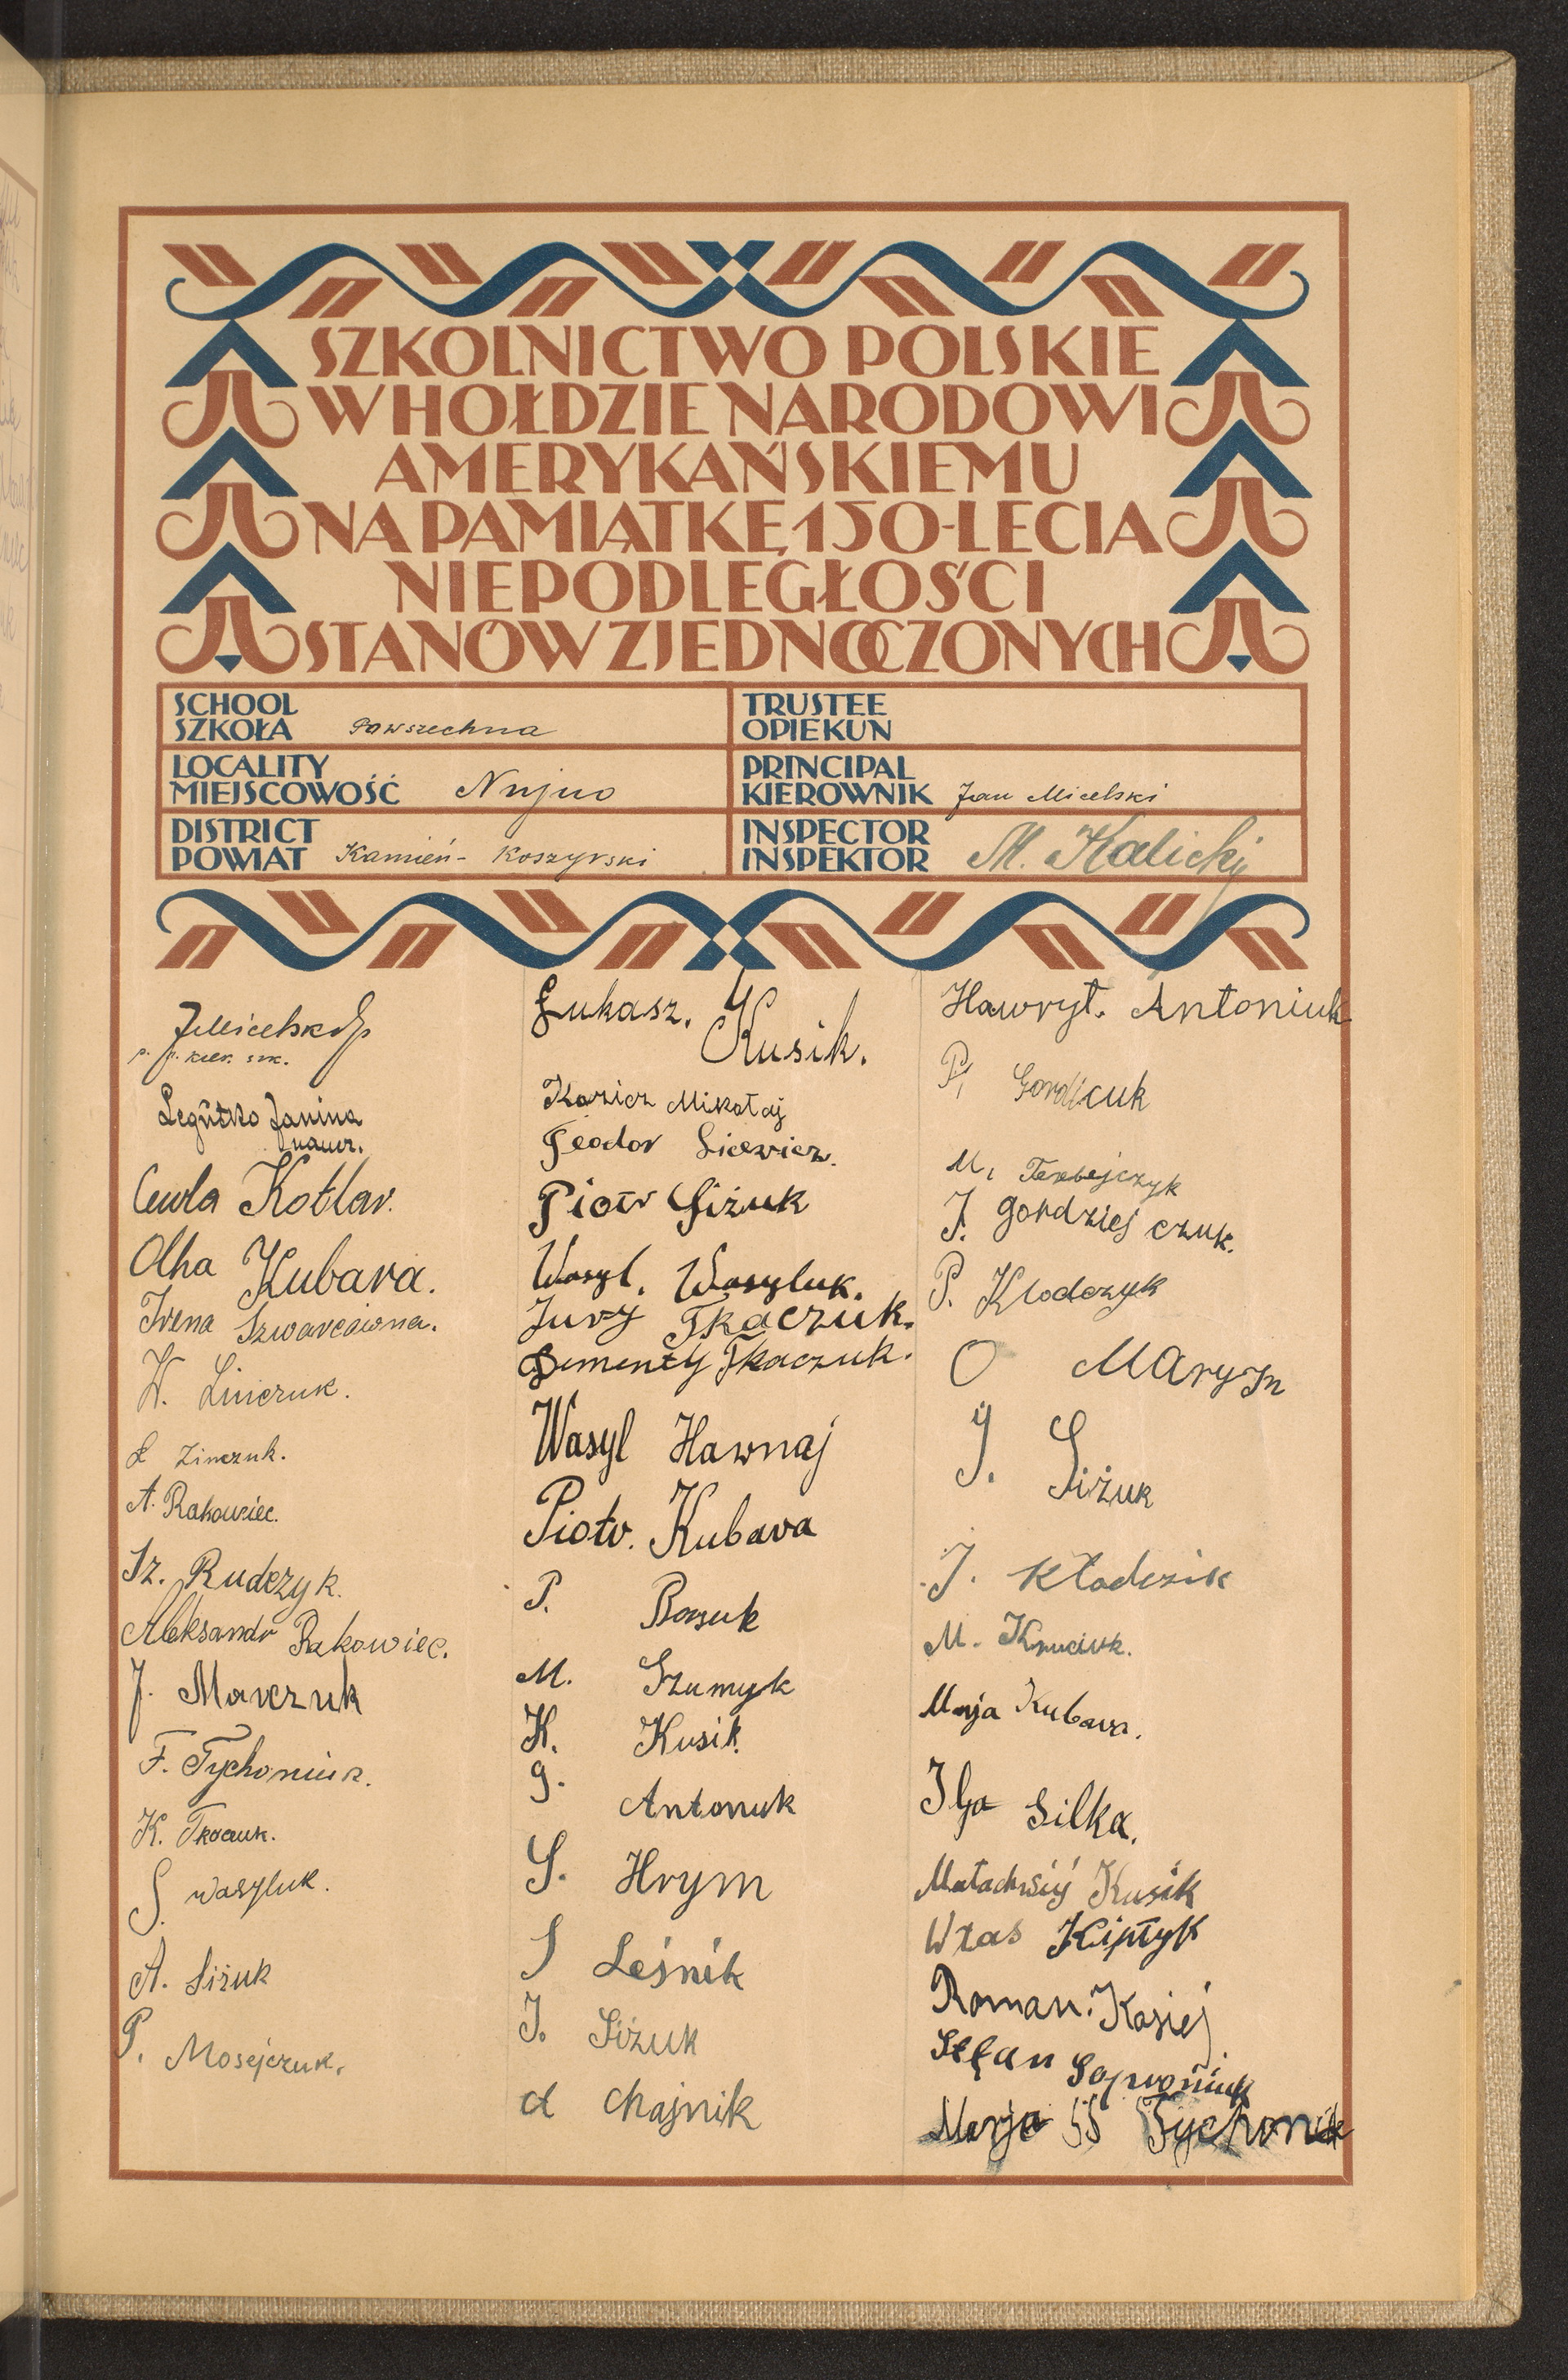 SZKOLNICTWO POLSKIE
W HOŁDZIE NARODOWI
AMERYKAŃSKIEMU
NA PAMIĄTKĘ 150-LECIA
NIEPODLEGŁOŚCI
STANÓW ZJEDNOCZONYCH
SCHOOL
SZKOŁA Powszechna
TRUSTEE
OPIEKUN
LOCALITY
MIEJSCOWOŚĆ Nujno
PRINCIPAL
KIEROWNIK Jan Micelski
DISTRICT
POWIAT Kamień-Koszyrski
INSPECTOR
INSPEKTOR M. Kalicki
JMicelski
p. o. kier. szk.
Legutko Janina
naucz.
Kotlar.
Olha Kubara.
Irena Szwarcówna.
W. Linczuk.
L Zinczuk.
A. Rakowiec.
Sz. Rudczyk.
Aleksandr Rakowiec.
J. Marczuk
F. Tychoniuk.
K. Tkaczuk.
S. Wasyluk.
A. Siżuk
P. Mosejczuk.
Łukasz. Kusik.
Kazicz Mikołaj
Teodor Sicewicz.
Piotr Siżuk
Wasyl. Wasyluk.
Jury Tkaczuk.
Dementy Tkaczuk.
Wasyl Hawnaj
Piotr. Kubara
P. Borsuk
M. Szumyk
K. Kusik
G. Antonuk
S. Hrym
S Leśnik
J. Siżuk
A Chajnik
Hawrył. Antoniuk
P. Gordicuk
M.
J. Gordziejczuk.
P. Klodczyk
O Maryn
J. Siżuk
J. Kłodczik
M. Kruciuk.
Marja Kubara.
Ilja Silka.
Kusik
Włas Kiptyk
Roman. Kosiej
Stefan
Marja SS Tychonik